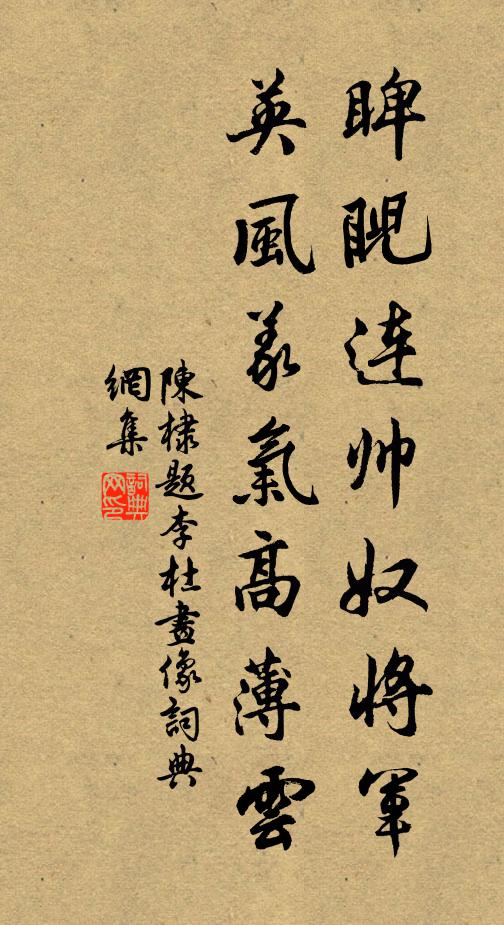 睥睨连帅奴將軍
英風義氣高薄雲
陳棣題李杜畫像詞典
網集
詞典
网印